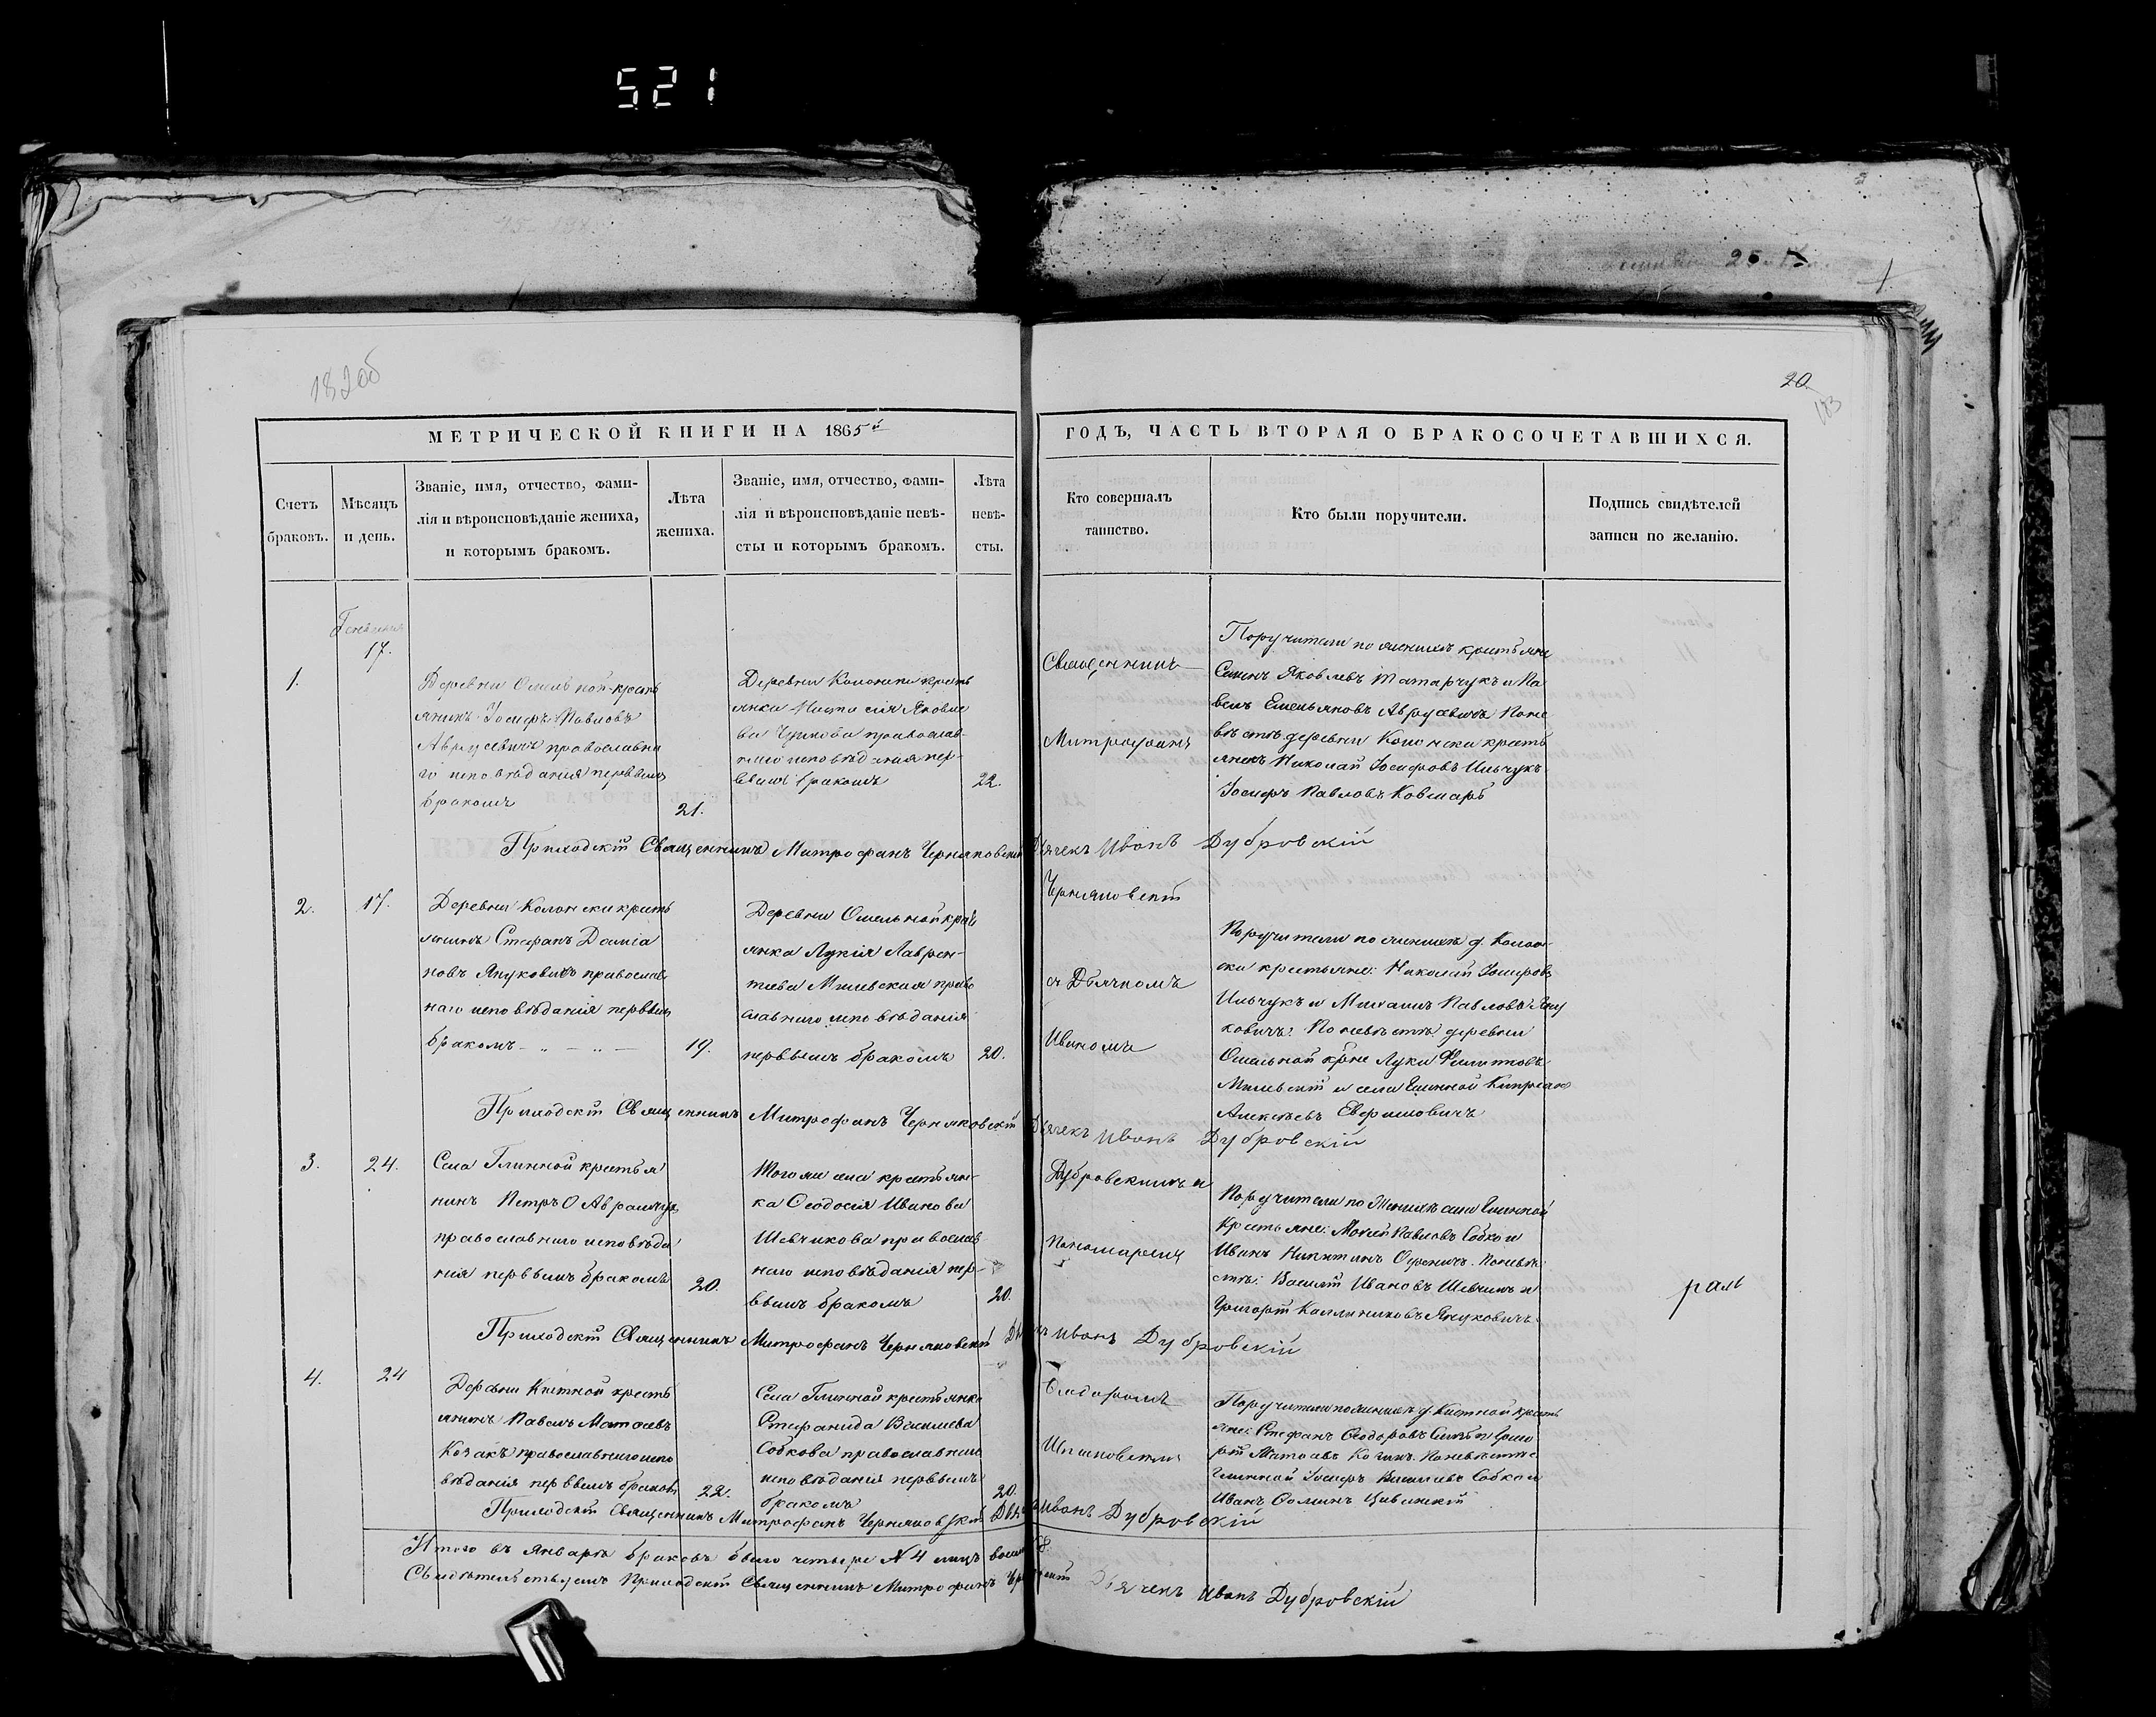 521
182об
20
183
МЕТРИЧЕСКОЙ КНИГИ НА 1865й
ГОДЪ, ЧАСТЬ ВТОРАЯ О БРАКОСОЧЕТАВШИХСЯ.
Счетъ браковъ.
Мѣсяцъ и день.
Званіе, имя, отчество, фами-
лія и вѣроисповѣданіе жениха,
и которымъ бракомъ.
Лѣта
жениха.
Званіе, имя, отчество, фами-
лія и вѣроисповѣданіе невѣ-
сты и которымъ бракомъ.
Лѣта
невѣ-
сты.
Кто совершалъ
таинство.
Кто были поручители.
Подпись свидѣтелей
записи по желанію.
1.
17.
Деревни Омельной кресть
янинъ Іосифъ Павловъ
Аврусевичъ православна
го исповѣданія первымъ
бракомъ
21.
Деревни Колонски кресть
янка Яковле
ва православ-
наго исповѣданія пер-
вымъ бракомъ
22.
Священникъ
Митрофанъ
Поручители по женихѣ крестьяне
Яковлевъ Татарчукъ и Па
велъ Емельяновъ Аврусевичъ Поне
вѣстѣ деревни Колонски кресть
янинъ Николай Іосифовъ Ильчукъ
Іосифъ Павловъ
Приходскій Священникъ Митрофанъ Черняковскій Дьячекъ Иванъ Дубровскій
2.
17.
Деревни Колонски кресть
янинъ Стефанъ Даміа
новъ Януковичъ православ
наго исповѣданія первымъ
бракомъ
19.
Деревни Омельной крес
янка Лукія Лаврен-
тіева Милевская право
славнаго исповѣданія
первымъ бракомъ
20.
Черняковскій
съ Дьячкомъ
Иваномъ
Поручители по женихѣ д. Колон-
ски крестьяне: Николай Іосифовъ
Ильчукъ и Михаилъ Павловъ Яну
ковичъ: По невѣстѣ деревни
Омельной Луки Филиповъ
Милевскій и села Глинной Кипріанъ
Алексѣевъ Ефимовичъ
Приходскій Священникъ Митрофанъ Черняковскій Дьячекъ Иванъ Дубровскій
3.
24.
Села Глинной крестья
нинъ Петръ Аврамчукъ
православнаго исповѣда
нія первымъ бракомъ
20.
Того же села крестьян-
ка Ѳеодосія Иванова
Шевчикова православ
наго исповѣданія пер-
вымъ бракомъ
20.
Дубровскимъ и
Пономаремъ
Поручители по Женихѣ села Глинной
Крестьяне: Павловъ Собко и
Иванъ Никитинъ Поневѣ
стѣ: Василій Ивановъ Шевчикъ и
Григорій Каллиниковъ Януковичъ.
раль
Приходскій Священникъ Митрофанъ Черняковскій Иванъ Дубровскій
4.
24
Деревни кресть
янинъ Павелъ Матѳеевъ
Козакъ православнаго испо
вѣданія первымъ бракомъ
22.
Села Глинной крестьянка
Стефанида Василіева
Собкова православнаго
исповѣданія первымъ
бракомъ
20.
Ѳеодоромъ
Поручители по женихѣ д. кресть
яне: Стефанъ Ѳеодоровъ
Матѳеевъ Поневѣстѣ с
Глинной Іосифъ Василіевъ Собко и
Иванъ Ѳоминъ
Приходскій Священникъ Митрофанъ Черняковскій Иванъ Дубровскій
Итого въ Январѣ браковъ было четыре № 4 лицъ восемь 8.
Свидѣтельствуемъ Приходскій Священникъ Митрофанъ Дьячекъ Иванъ Дубровскій